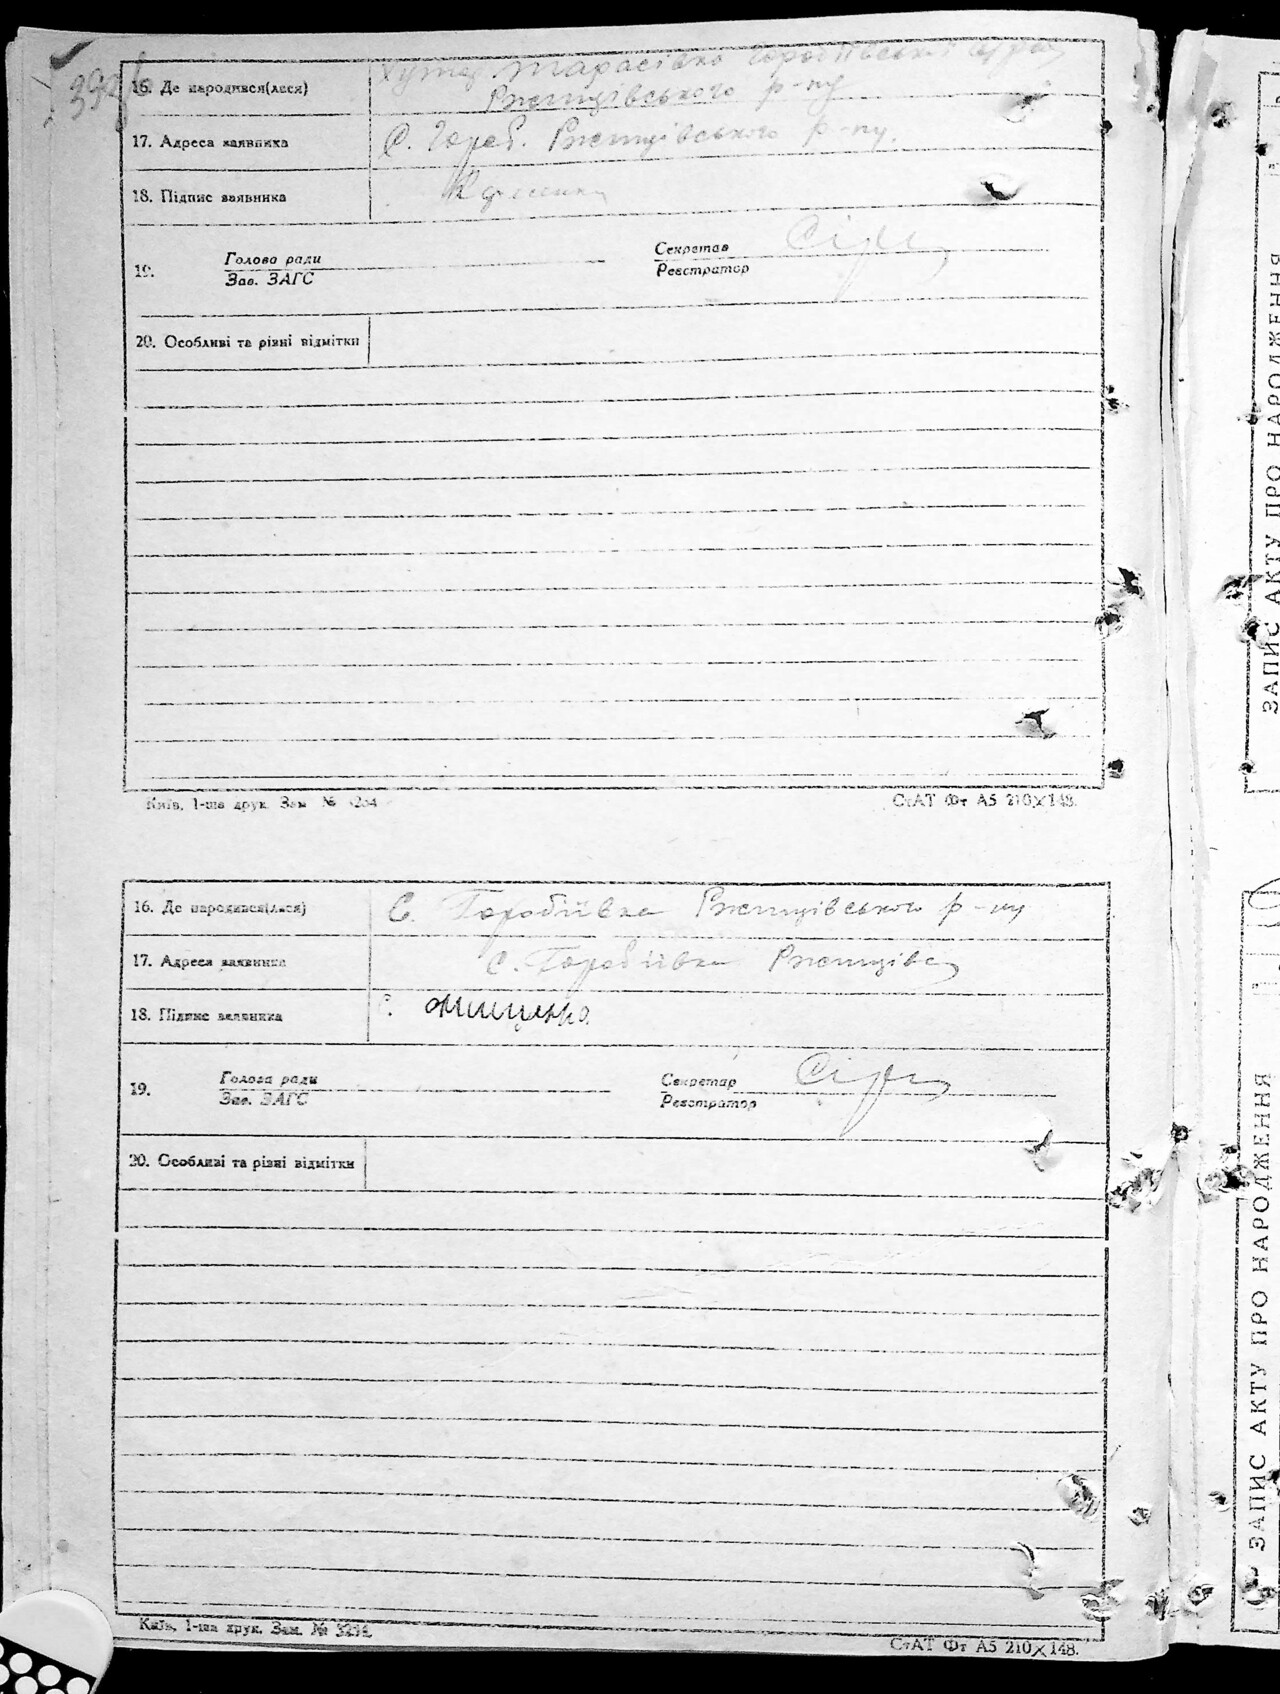 392
16. Де народився(лася) Хутор Тарасівка
Ржищівського р-ну
17. Адреса заявника С. Гороб. Ржищівського р-ну.
18. Підпис заявника
19. Голова ради Секретар
Зав. ЗАГС Реєстратор
20. Особливі та різні відмітки
Київ, 1-ша друк. Зам №
СтАТ Фт А5 210X148.
16. Де народився(лася) С. Горобіївка Ржищівського р-ну
17. Адреса заявника с. Горобіївка Ржищівс
18. Підпис заявника Онищенко
19. Голова ради Секретар
Зав. ЗАГС Реєстратор
20. Особливі та різні відмітки
Київ, 1-ша друк. Зам. №
СтАТ Фт А5 210X148.
ЗАПИС АКТУ ПРО НАРОДЖЕННЯ
ЗАПИС АКТУ ПРО НАРОДЖЕННЯ